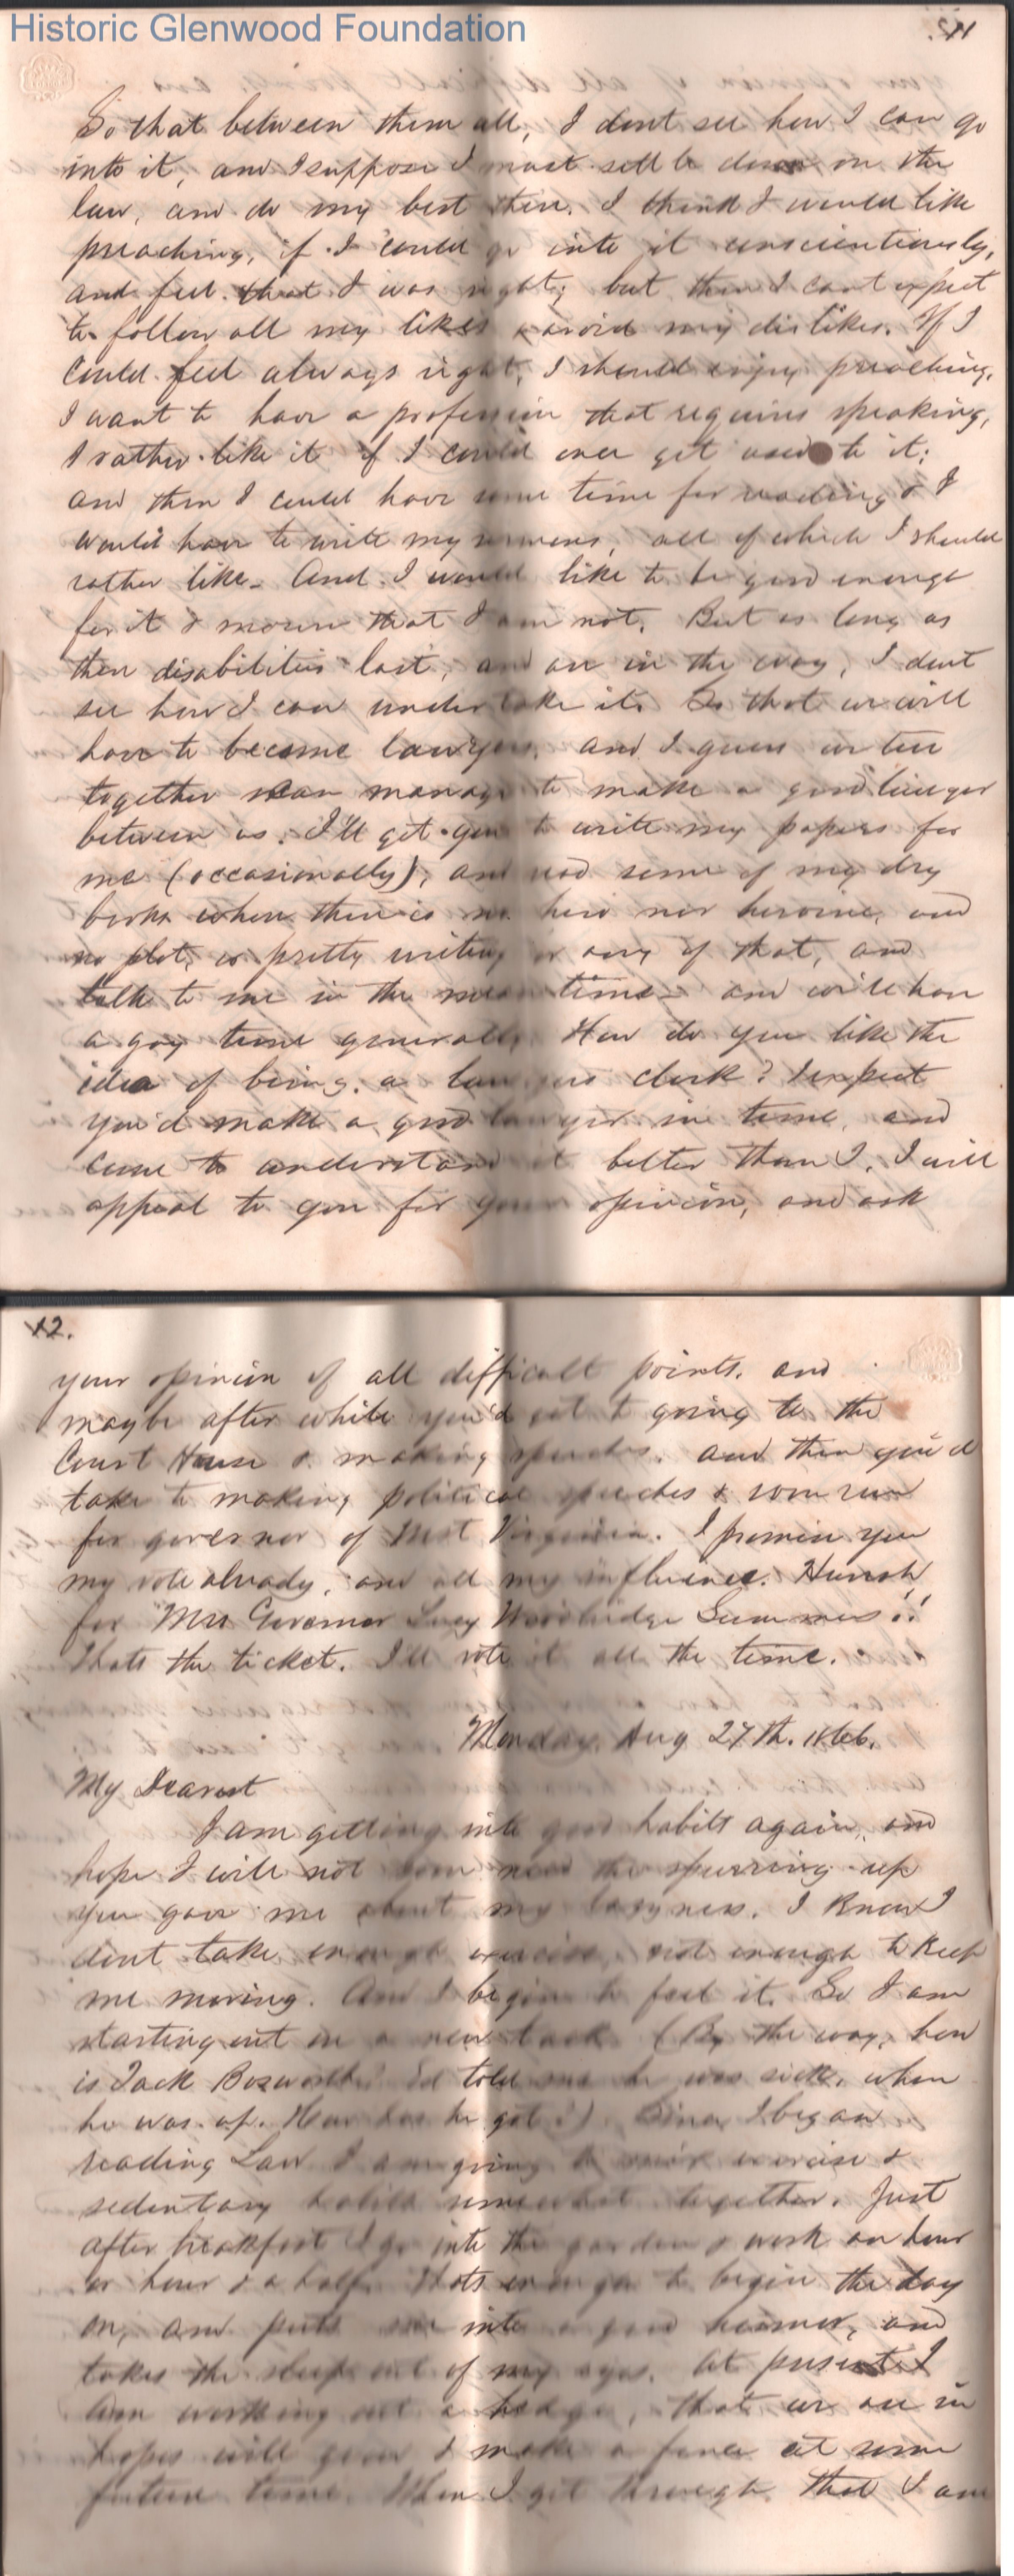 Historic Glenwood Foundation
11.
So that between them all, I dont see how I can go
into it, and I suppose I must settle down on the
law, and do my best there. I think I would like
preaching, if I could go into it conscientiously,
and feel that I was right; but then I cant expect
to follow all my likes & avoid my dislikes. If I
could feel always right, I should enjoy preaching.
I want to have a profession that requires speaking,
I rather like it if I could ever get used to it;
and then I could have some time for reading & I
would have to write my sermons, all of which I should
rather like. And I would like to be good enough
for it & mourn that I am not. But as long as
these disabilities last, and are in the way, I dont
see how I can undertake it. So that we will
have to become lawyers. And I guess we two
together can manage to make a good lawyer
between us. I'll get you to write my papers for
me (occasionally), and read some of my dry
books where there is no hero nor heroine, and
no plot, or pretty writing or any of that, and
talk to me in the mean time and we'll have
a gay time generally. How do you like the
idea of being a lawyers clerk? I expect
you'd make a good lawyer in time, and
come to understand it better than I. I will
appeal to you for your opinion, and ask
12.
your opinion of all difficult points. and
maybe after while you'd get to going to the
Court House & making speeches. and then you'd
take to making political speeches & soon run
for governor of West Virginia. I promise you
my vote already, and all my influence. Hurrah
for Mrs Governor Lucy Woodbridge Summers!!
Thats the ticket. I'll vote it all the time.
Monday. Aug 27th. 1866.
My Dearest
I am getting into good habits again, and
hope I will not soon need the spurring up
you gave me about my lazyness. I know I
dont take enough exercise, not enough to keep
me moving. And I begin to feel it. So I am
starting out on a new tack. (By the way, how
is Jack Bosworth? Ed told me he was sick, when
he was up. How has he got?) Since I began
reading Law I am going to mix exercise &
sedentary habits somewhat together. Just
after breakfast I go into the garden & work an hour
or hour & a half. Thats enough to begin the day
on, and puts me into a good humor, and
takes the sleep out of my eyes. At present I
am working out a hedge, that we are in
hopes will grow & make a fence at some
future time. When I get through that I am